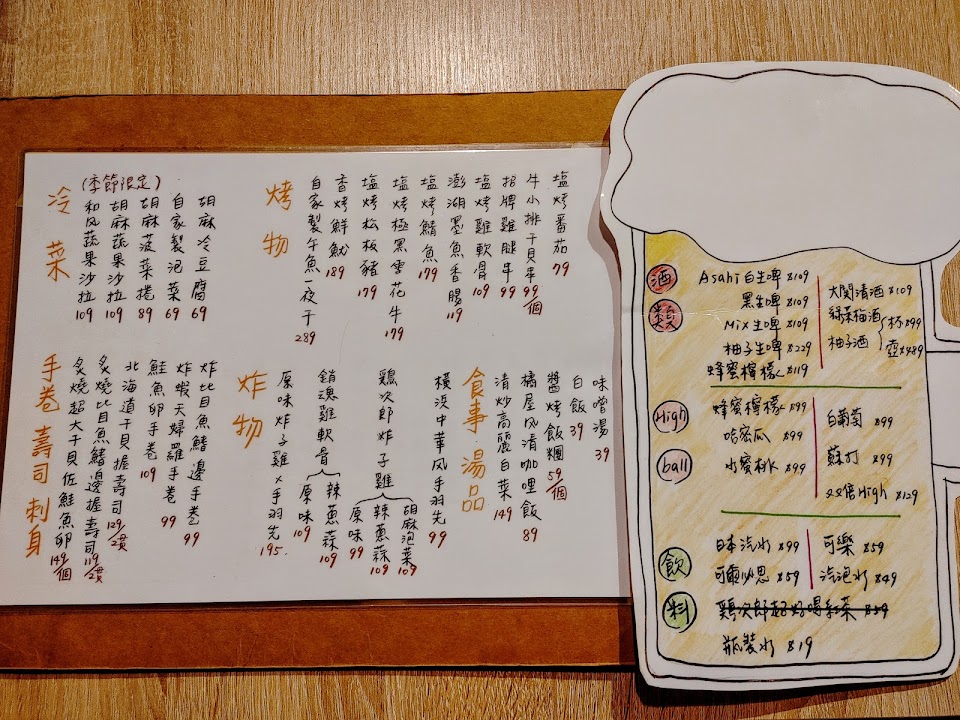 冷菜
(季節限定)
胡麻冷豆腐 69
自家製泡菜 69
胡麻菠菜捲 89
胡麻蔬果沙拉 109
和风蔬果沙拉 109
烤物
塩烤蕃茄 79
牛小排干貝串 99/個
招牌雞腿串 99
塩烤雞軟骨 109
澎湖墨魚香腸 119
塩烤鯖魚 179
塩烤極黑雪花牛 179
塩烤松板豬 179
香烤鮮魷 189
自家製午魚一夜干 289
手卷壽司刺身
炸比目魚鰭邊手卷 99
炸蝦天婦羅手卷 99
鮭魚卵手卷 109
北海道干貝握壽司 129/2貫
炙燒比目魚鰭邊握壽司 119/2貫
炙燒超大干貝佐鮭魚卵 149/個
炸物
橫浜中華风手羽先 99
鶏次郎炸子雞
胡麻泡菜 109
辣蔥蒜 109
原味 99
銷魂雞軟骨
辣蔥蒜 109
原味 109
原味炸子雞×手羽先 195.
食事·湯品
味噌湯 39
白飯 39
醬烤飯糰 59/個
橘屋风清咖哩飯 89
清炒高麗白菜 149
酒類
Asahi 白生啤 $109
黑生啤 $109
Mix生啤 $109
柚子生啤 $229
蜂蜜檸檬 $119
大関清酒 $109
綠茶梅酒
柚子酒
杯$99
壺$489
High ball
蜂蜜檸檬 $99
哈密瓜 $99
水蜜桃 $99
白葡萄 $99
蘇打 $99
双倍High $129
飲料
日本汽水 $99
可爾必思 $59
可樂 $59
汽泡水 $49
鶏次郎超好喝紅茶 $39
瓶裝水 $19